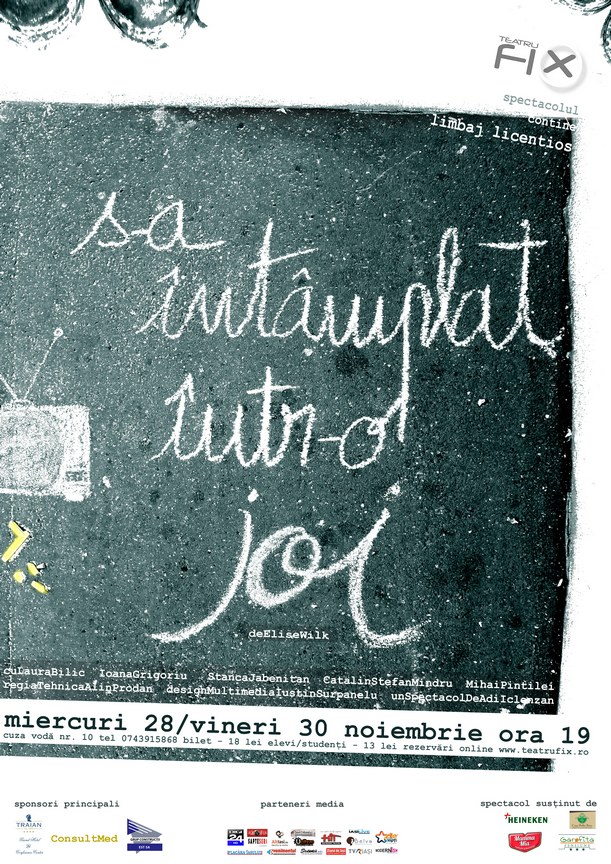 TEATRU
FIX
spectacolul
contine
limbaj licentios
s-a
întâmplat
într-o
joi
deEliseWilk
cuLauraBilic IoanaGrigoriu StancaJabenitan CatalinStefanMindru MihaiPintilei
regiaTehnicaAlinProdan designMultimediaIustinSurpanelu unSpectacolDeAdiIclenzan
miercuri 28/vineri 30 noiembrie ora 19
cuza vodă nr. 10 tel 0743915868 bilet - 18 lei elevi/studenți - 13 lei rezervări online www.teatrufix.ro
sponsori principali
parteneri media
spectacol susținut de
TRAIAN
ConsultMed
HEINEKEN